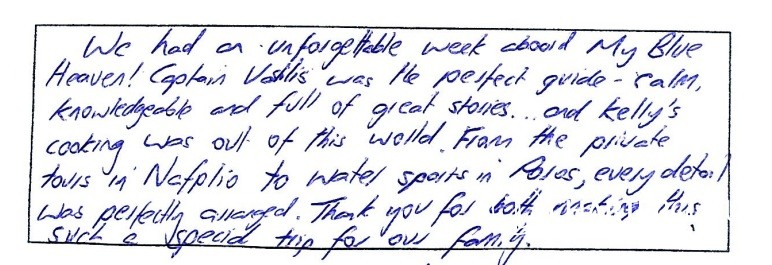 We had an unforgettable week aboard My Blue
Heaven! Captain Vasilis was the perfect guide - calm,
knowledgeable and full of great stories... and Kelly's
cooking was out of this world. From the private
tours in Nafplio to water sports in Poros, every detail
was perfectly arranged. Thank you for both making this
such a special trip for our family.